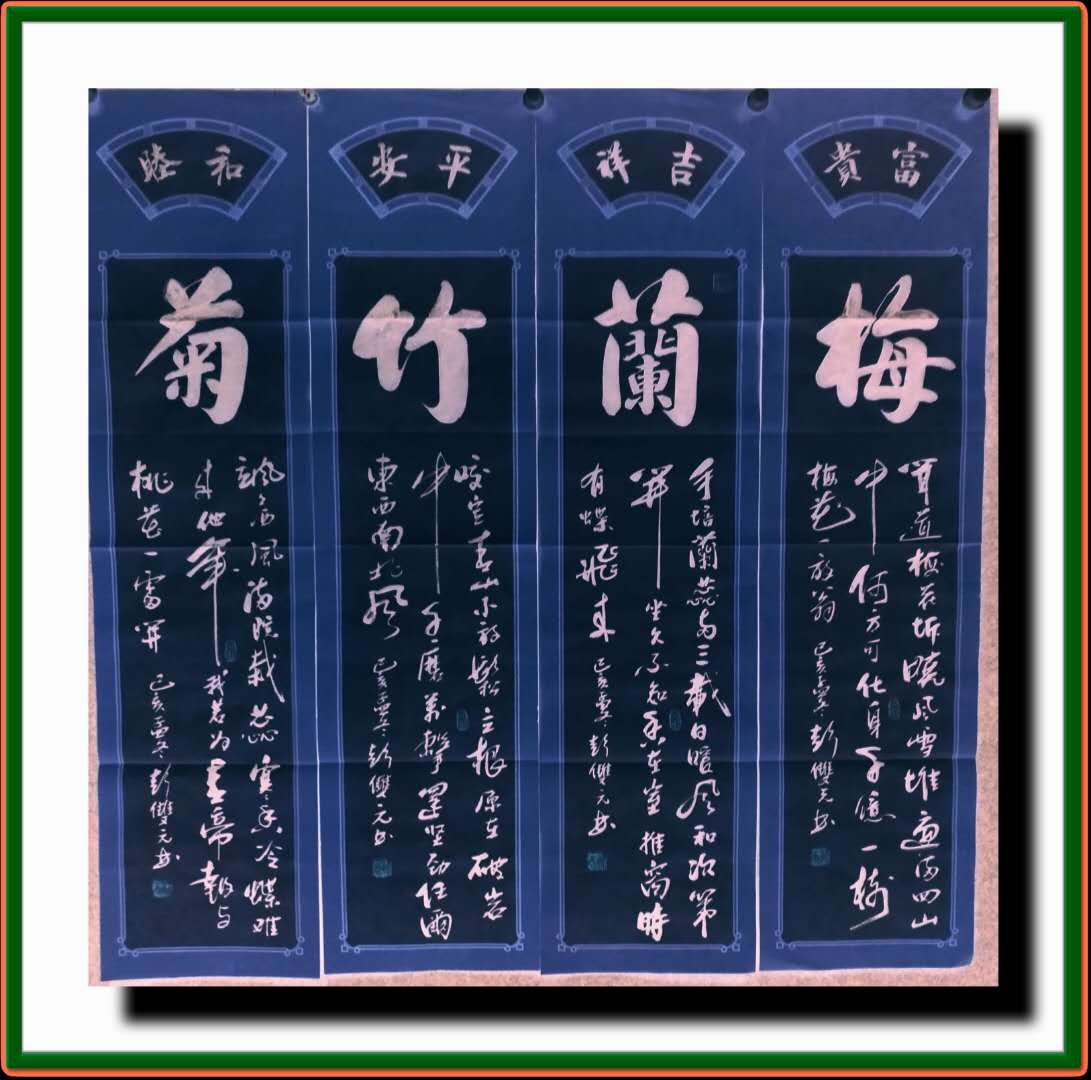 富貴
梅
聞道梅花坼曉風雪堆遍滿四山
中何方可化身千億一樹
梅花一放翁 己亥 冬彭雙元书
吉祥
蘭
手培蘭蕊两三載日暖風和次第
開坐久不知香在室推窗時
有蝶飛來 己亥 冬彭雙元书
平安
竹
咬定青山不放鬆立根原在破岩
中千磨萬擊還坚劲任爾
東西南北风 己亥 冬彭雙元书
和睦
菊
飒々西風满院栽蕊寒香冷蝶难
来他年我若为青帝報与
桃花一處開 己亥 冬彭雙元书